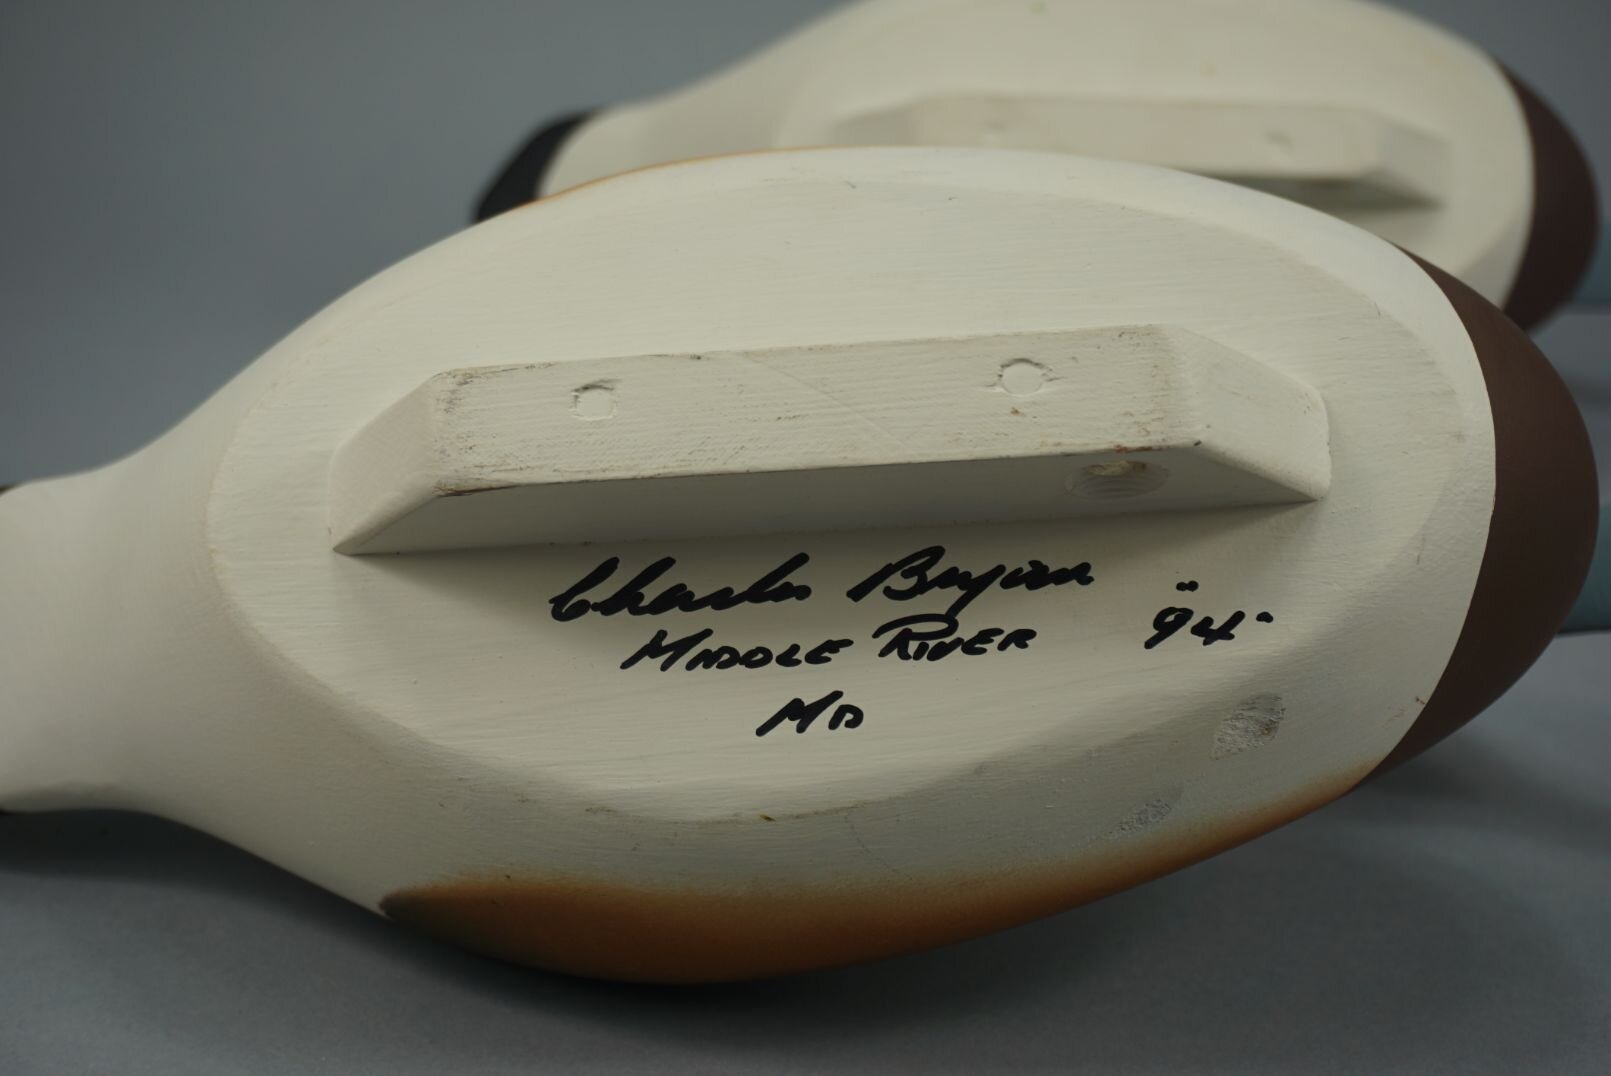 Charles Bryan
MIDDLE RIVER "94"
MD